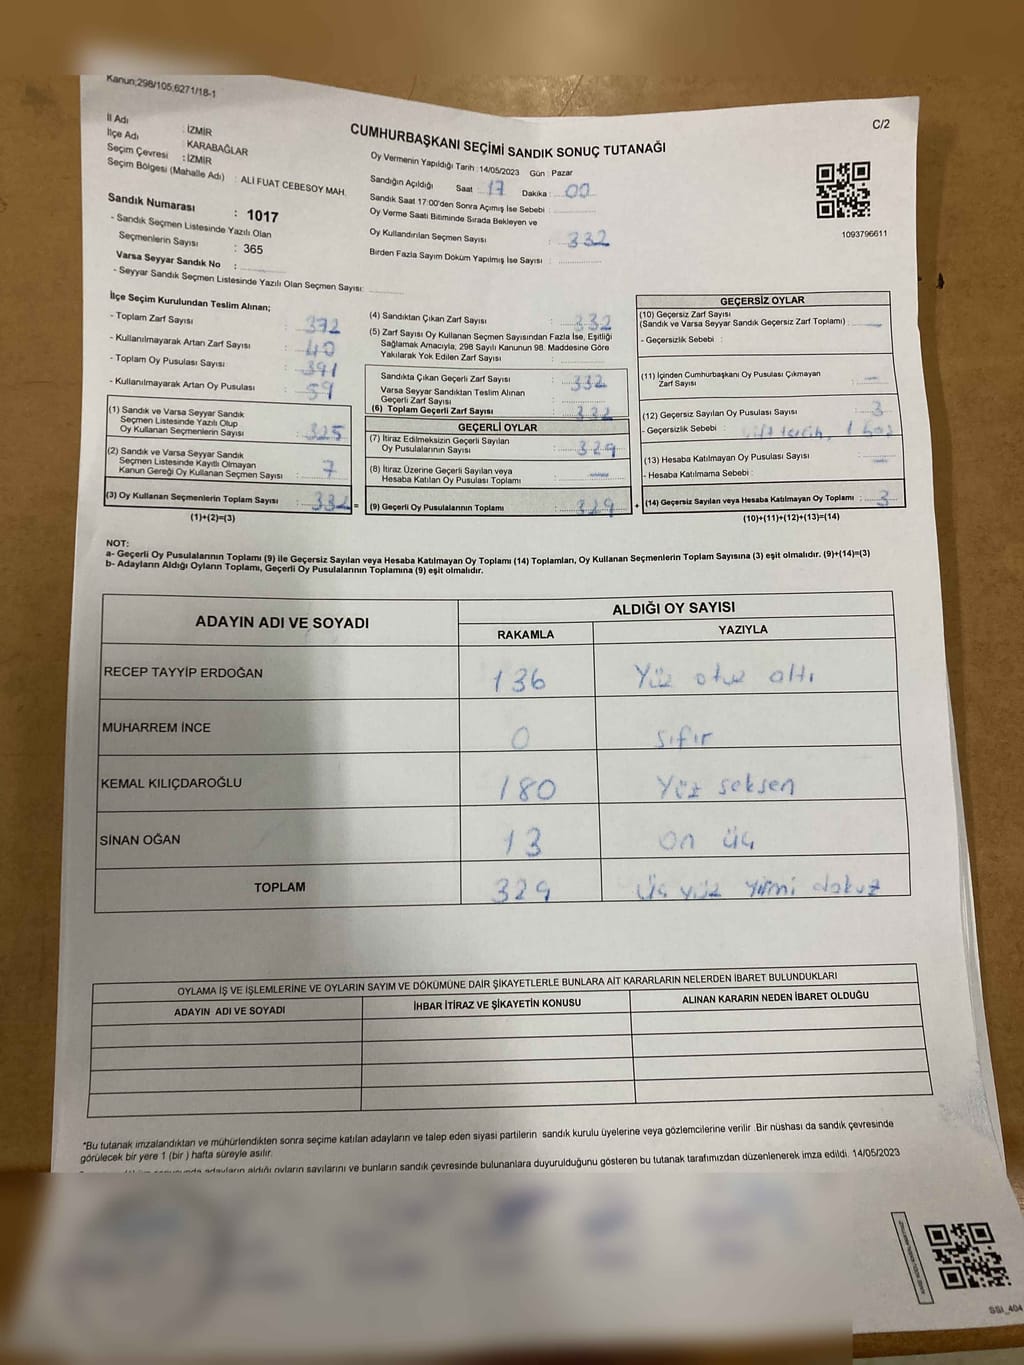 Kanun;298/105,6271/18-1
C/2
CUMHURBAŞKANI SEÇİMİ SANDIK SONUÇ TUTANAĞI
İl Adı : İZMİR
İlçe Adı : KARABAĞLAR
Seçim Çevresi : İZMİR
Seçim Bölgesi (Mahalle Adı) : ALİ FUAT CEBESOY MAH.
Sandık Numarası : 1017
- Sandık Seçmen Listesinde Yazılı Olan
Seçmenlerin Sayısı : 365
Varsa Seyyar Sandık No :
- Seyyar Sandık Seçmen Listesinde Yazılı Olan Seçmen Sayısı:
Oy Vermenin Yapıldığı Tarih : 14/05/2023 Gün : Pazar
Sandığın Açıldığı Saat : 17 Dakika : 00
Sandık Saat 17:00'den Sonra Açımış İse Sebebi :
Oy Verme Saati Bitiminde Sırada Bekleyen ve
Oy Kullandırılan Seçmen Sayısı : 332
Birden Fazla Sayım Döküm Yapılmış İse Sayısı :
1093796611
İlçe Seçim Kurulundan Teslim Alınan;
- Toplam Zarf Sayısı : 372
- Kullanılmayarak Artan Zarf Sayısı : 40
- Toplam Oy Pusulası Sayısı : 391
- Kullanılmayarak Artan Oy Pusulası : 59
(1) Sandık ve Varsa Seyyar Sandık
Seçmen Listesinde Yazılı Olup
Oy Kullanan Seçmenlerin Sayısı : 325
(2) Sandık ve Varsa Seyyar Sandık
Seçmen Listesinde Kayıtlı Olmayan
Kanun Gereği Oy Kullanan Seçmen Sayısı : 7
(3) Oy Kullanan Seçmenlerin Toplam Sayısı : 332 =
(1)+(2)=(3)
(4) Sandıktan Çıkan Zarf Sayısı : 332
(5) Zarf Sayısı Oy Kullanan Seçmen Sayısından Fazla İse, Eşitliği
Sağlamak Amacıyla; 298 Sayılı Kanunun 98. Maddesine Göre
Yakılarak Yok Edilen Zarf Sayısı :
Sandıkta Çıkan Geçerli Zarf Sayısı : 332
Varsa Seyyar Sandıktan Teslim Alınan
Geçerli Zarf Sayısı :
(6) Toplam Geçerli Zarf Sayısı : 332
GEÇERLİ OYLAR
(7) İtiraz Edilmeksizin Geçerli Sayılan
Oy Pusulalarının Sayısı : 329
(8) İtiraz Üzerine Geçerli Sayılan veya
Hesaba Katılan Oy Pusulası Toplamı : —
(9) Geçerli Oy Pusulalarının Toplamı : 329 +
GEÇERSİZ OYLAR
(10) Geçersiz Zarf Sayısı
(Sandık ve Varsa Seyyar Sandık Geçersiz Zarf Toplamı) : —
- Geçersizlik Sebebi :
(11) İçinden Cumhurbaşkanı Oy Pusulası Çıkmayan
Zarf Sayısı : —
(12) Geçersiz Sayılan Oy Pusulası Sayısı : 3
- Geçersizlik Sebebi : tercih, 1
(13) Hesaba Katılmayan Oy Pusulası Sayısı : —
- Hesaba Katılmama Sebebi :
(14) Geçersiz Sayılan veya Hesaba Katılmayan Oy Toplamı : 3
(10)+(11)+(12)+(13)=(14)
NOT:
a- Geçerli Oy Pusulalarının Toplamı (9) ile Geçersiz Sayılan veya Hesaba Katılmayan Oy Toplamı (14) Toplamları, Oy Kullanan Seçmenlerin Toplam Sayısına (3) eşit olmalıdır. (9)+(14)=(3)
b- Adayların Aldığı Oyların Toplamı, Geçerli Oy Pusulalarının Toplamına (9) eşit olmalıdır.
ADAYIN ADI VE SOYADI
ALDIĞI OY SAYISI
RAKAMLA YAZIYLA
RECEP TAYYİP ERDOĞAN 136 Yüz otuz altı
MUHARREM İNCE 0 sıfır
KEMAL KILIÇDAROĞLU 180 Yüz seksen
SİNAN OĞAN 13 on üç
TOPLAM 329 üç yüz yirmi dokuz
OYLAMA İŞ VE İŞLEMLERİNE VE OYLARIN SAYIM VE DÖKÜMÜNE DAİR ŞİKAYETLERLE BUNLARA AİT KARARLARIN NELERDEN İBARET BULUNDUKLARI
ADAYIN ADI VE SOYADI İHBAR İTİRAZ VE ŞİKAYETİN KONUSU ALINAN KARARIN NEDEN İBARET OLDUĞU
*Bu tutanak imzalandıktan ve mühürlendikten sonra seçime katılan adayların ve talep eden siyasi partilerin sandık kurulu üyelerine veya gözlemcilerine verilir .Bir nüshası da sandık çevresinde
görülecek bir yere 1 (bir ) hafta süreyle asılır.
adayların aldığı oyların sayılarını ve bunların sandık çevresinde bulunanlara duyurulduğunu gösteren bu tutanak tarafımızdan düzenlenerek imza edildi. 14/05/2023
SSI_404